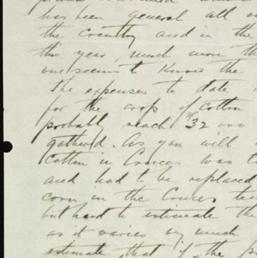 has been general all
the Country and in the
the year much more th
one seems to know the
The expenses to date
for the crop of Cotton
probably reach $32 000
gathered. As you will
Cotton in was
and had to be replaced
corn in the
but hard to estimate the
as it varies very much
estimate that if the p